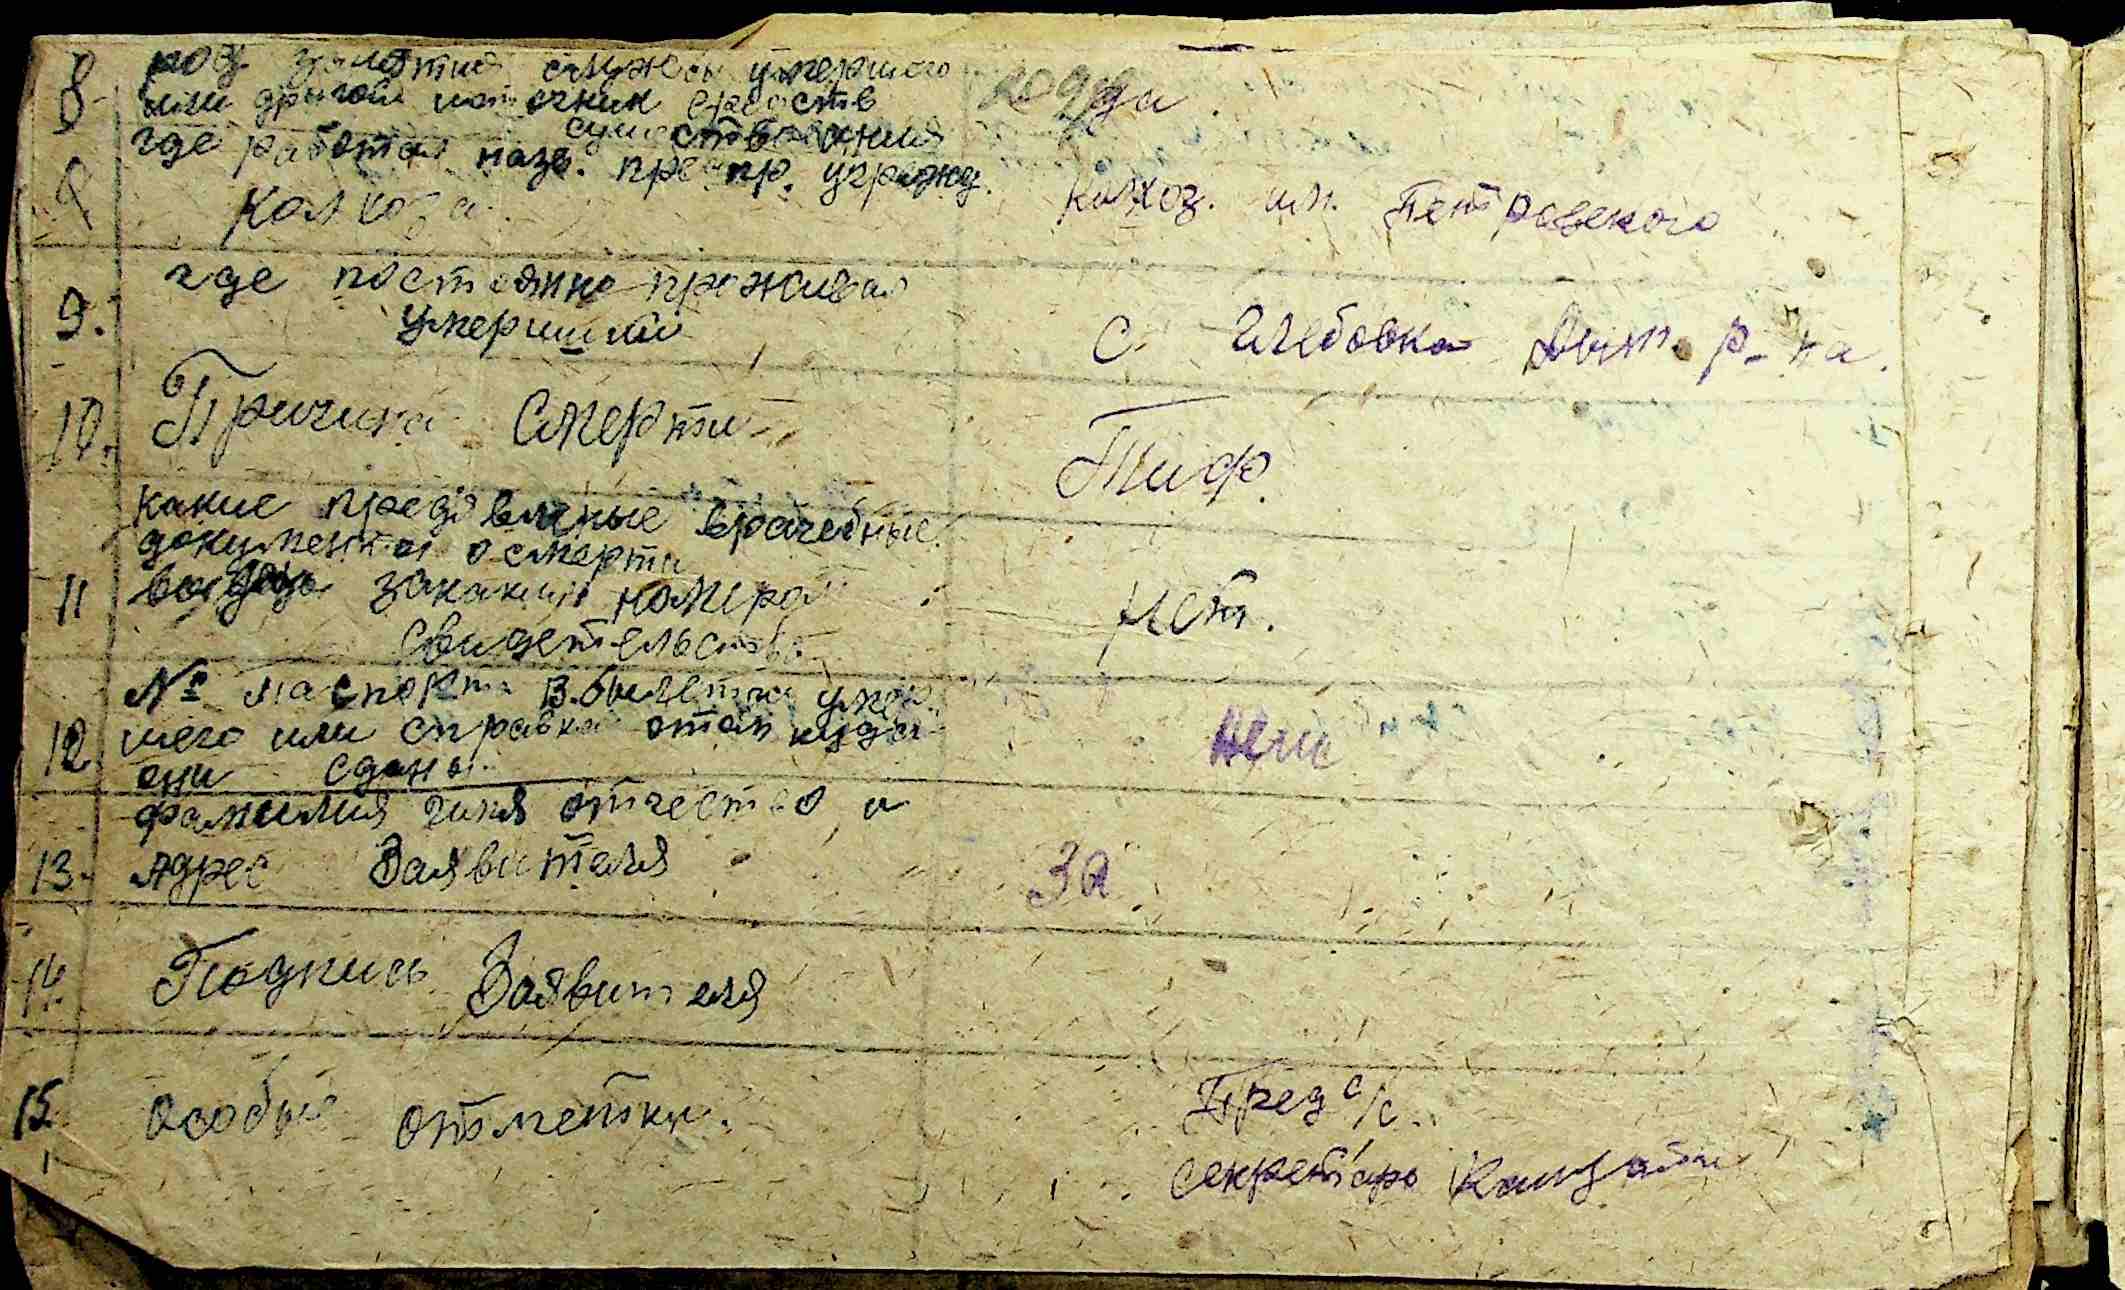 8. род занятия службы умершого
или другой источник средств
существования
года
где работал назв. предпр. учрежд.
колхоза. колхоз. им. Петровского
9. где постоянно проживал
умерший
с. Глебовка Дым. р-на.
10. Причина смерти Тиф.
какие предявленые врачебные
документы о смерти
11 закаким номером нет.
свидетельство
№ паспорта В. билета умер-
12. шего или справка отом куда нет
они сданы.
фамилия имя отчество и
13. адрес Заявителя За
14. Подпись Заявителя
15. особые отметки. Пред с/с.
секретарь